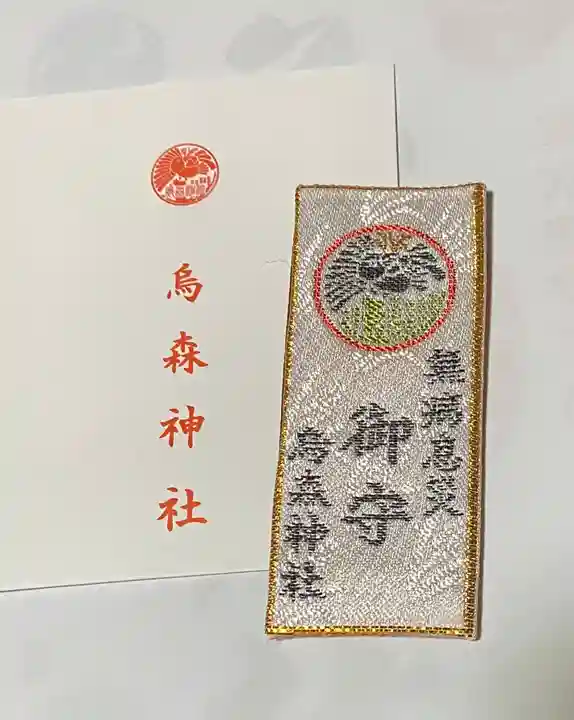 烏森神社
無病息災
御守
烏森神社